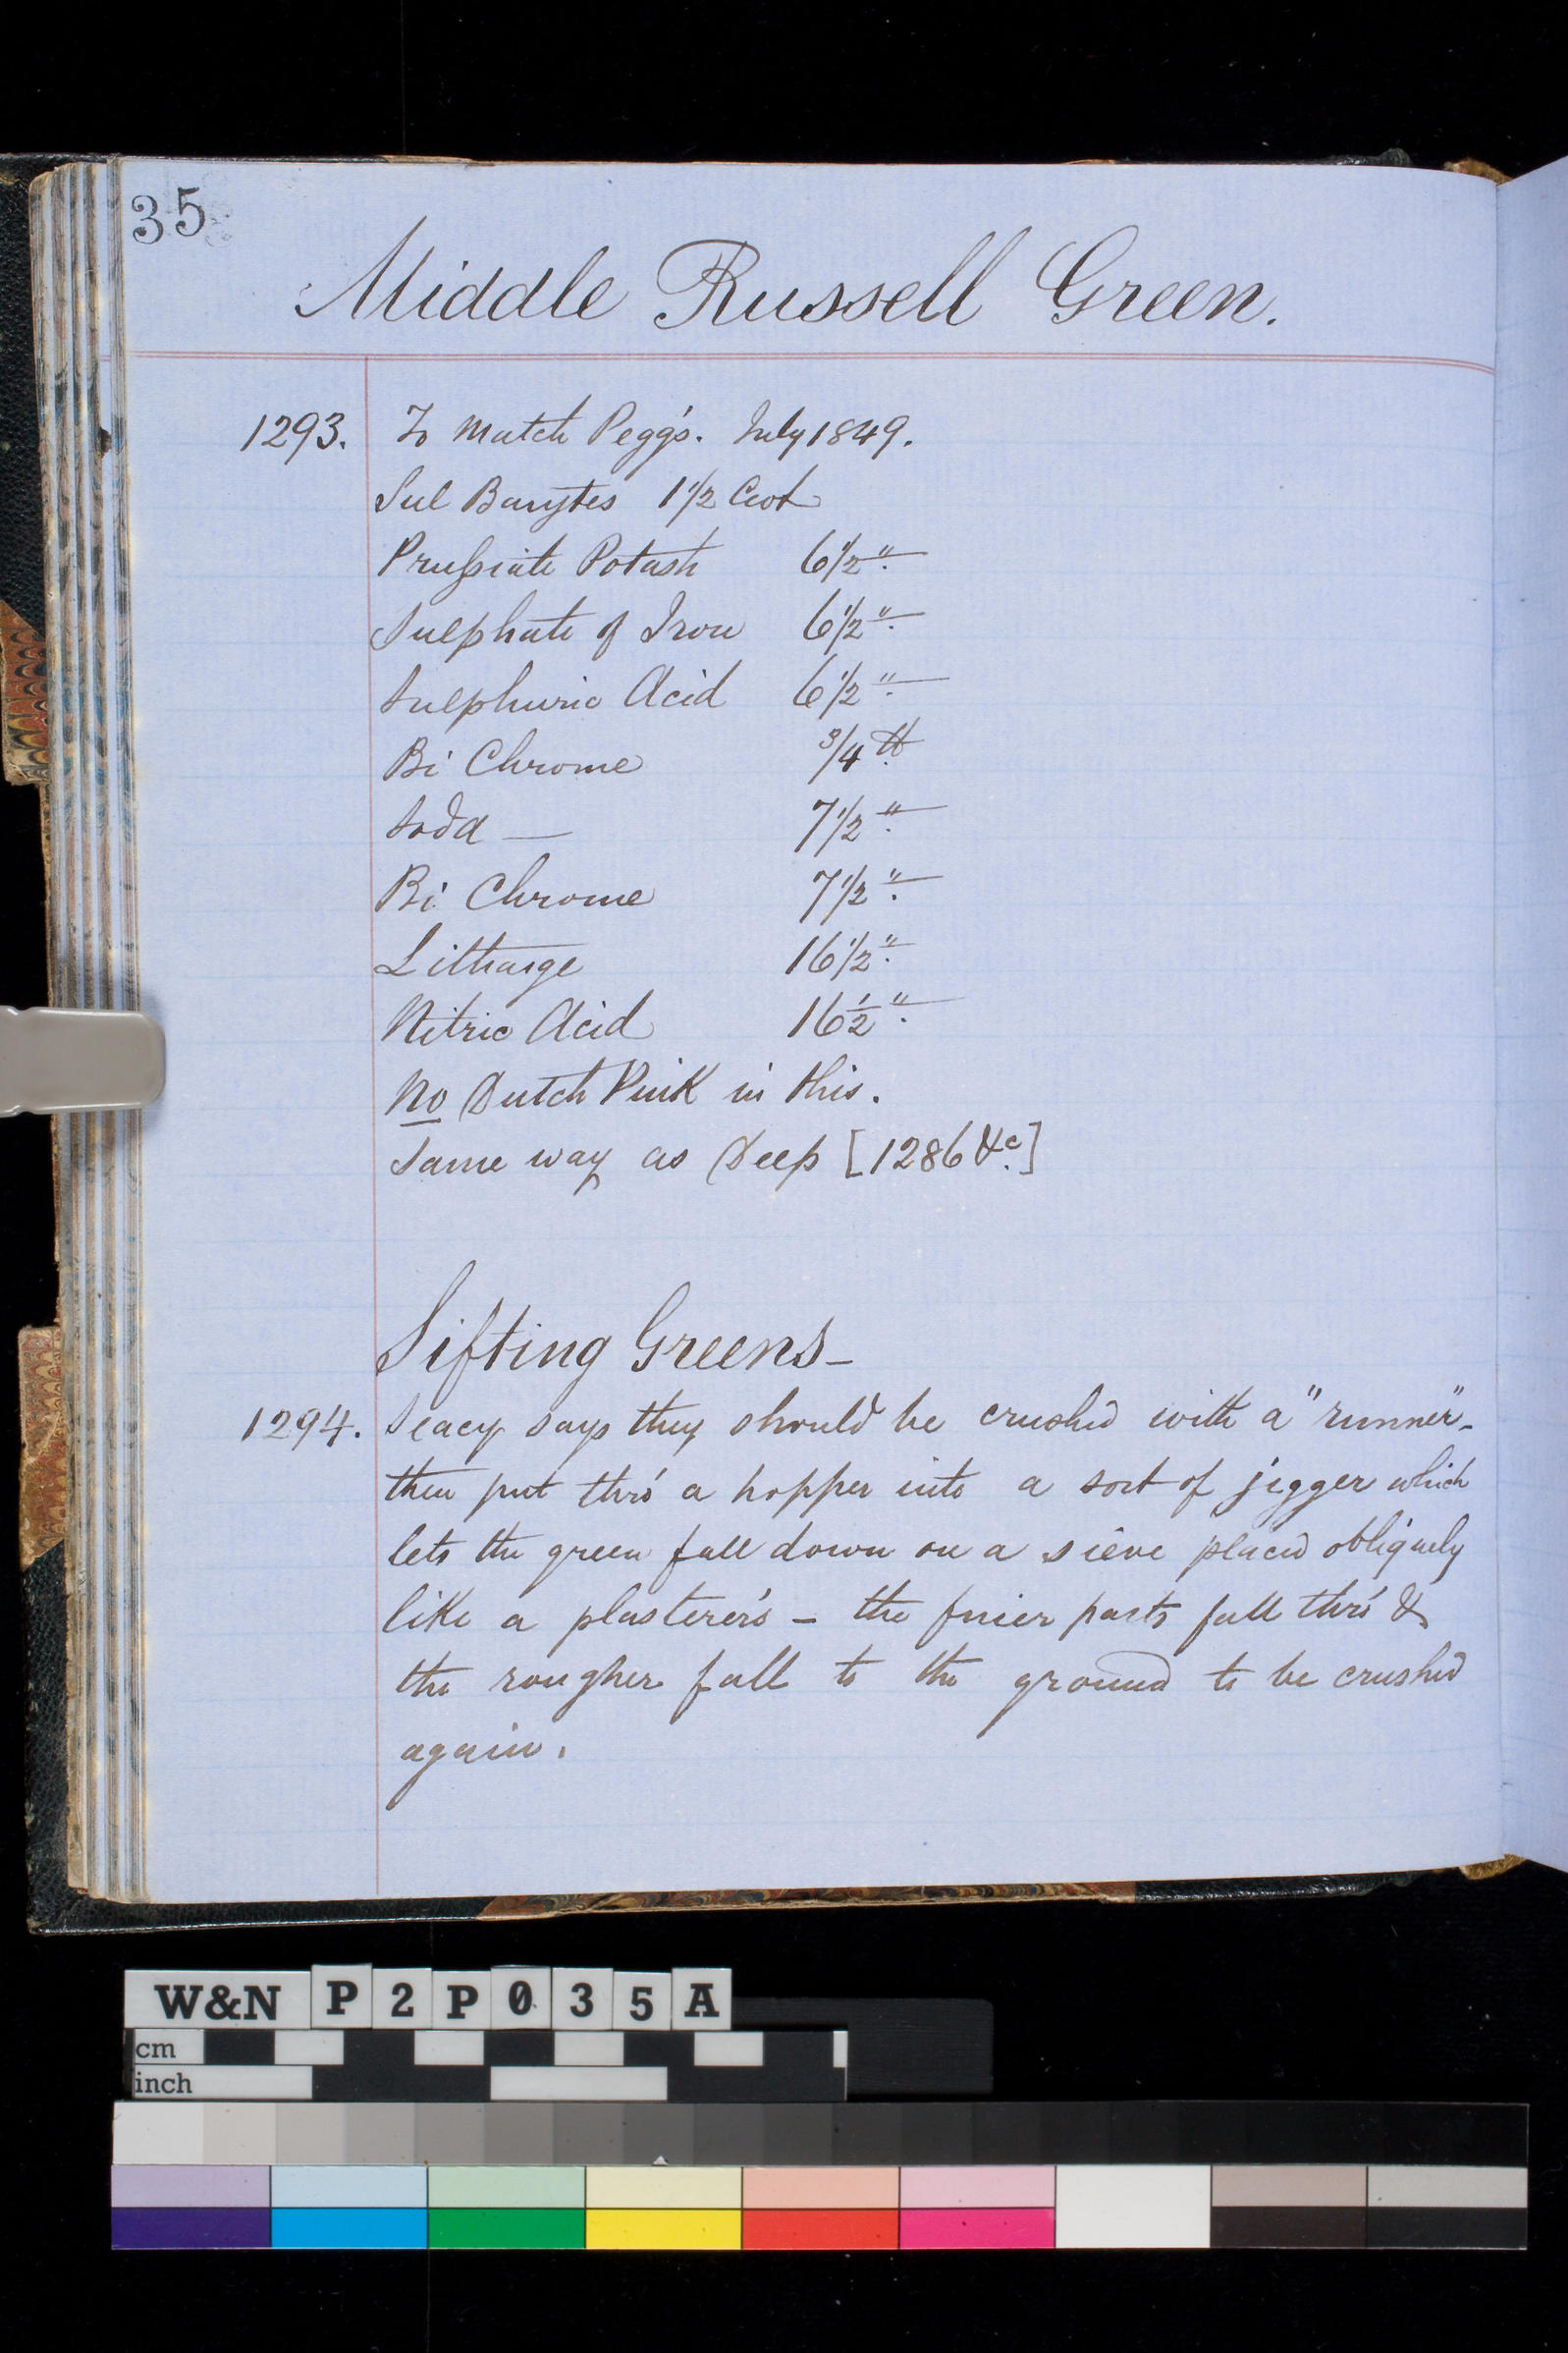 35
Middle Russell Green.
1293. To Match Pegg's. July 1849.
Sul Barytes 1 1/2 Cwt
Prussiate Potash 6 1/2 "
Sulphate of Iron 6 1/2 "
Sulphuric Acid 6 1/2 "
Bi Chrome 3/4 lb
Soda — 7 1/2 "
Bi Chrome 7 1/2 "
Litharge 16 1/2 "
Nitric Acid 16 1/2 "
No Dutch Pink in this.
Same way as Deep [1286 &c]
Sifting Greens—
1294. Seacy says they should be crushed with a "runner"-
then put thro' a hopper into a sort of jigger which
lets the green fall down on a sieve placed obliquely
like a plasterer's — the finer parts fall thro' &
the rougher fall to the ground to be crushed
again.
W&N P2P035A
cm
inch